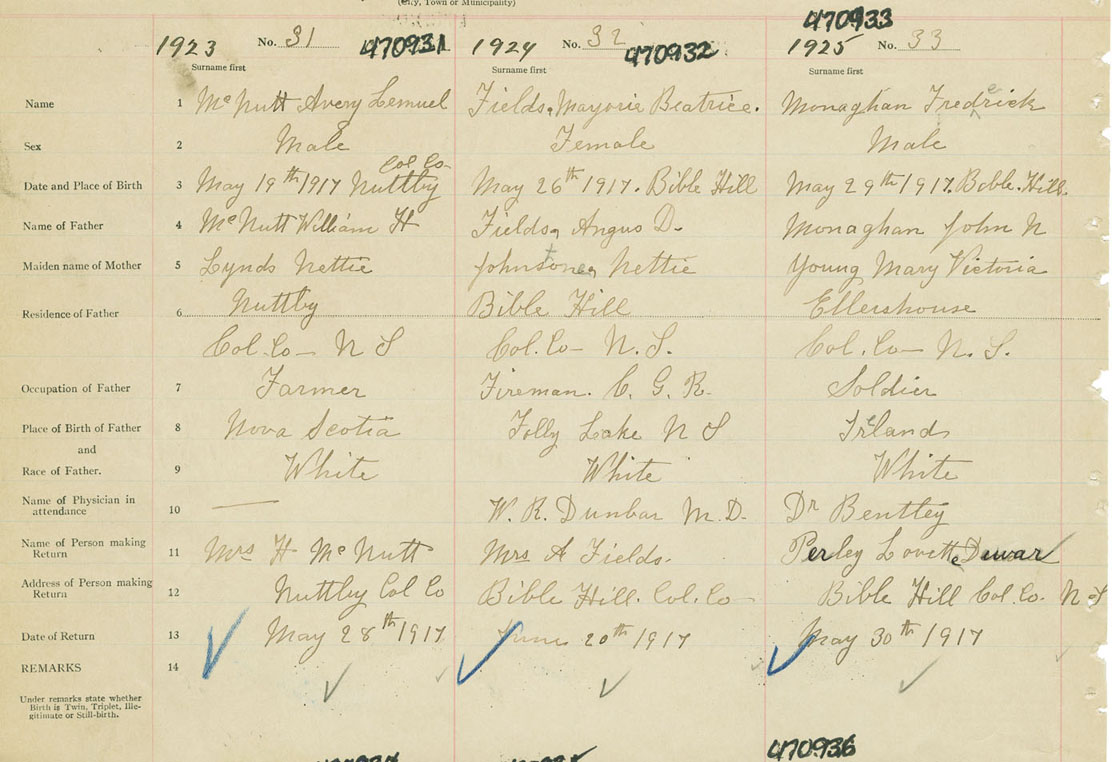 (City, Town or Municipality)
470933
1923 No. 31 470931 1924 No. 32 470932 1925 No. 33
Surname first Surname first Surname first
Name 1 McNutt Avery Lemuel Fields, Marjorie Beatrice. Monaghan Fredrick
e
Sex 2 Male Female Male
Col Co
Date and Place of Birth 3 May 19th 1917 Nuttby May 26th 1917. Bible Hill May 29th 1917. Bible Hill.
Name of Father 4 McNutt William H Fields, Angus D. Monaghan John N
Maiden name of Mother 5 Lynds Nettie Nettie Young Mary Victoria
Residence of Father 6 Nuttby Bible Hill Ellershouse
Col. Co— N S Col. Co— N. S. Col. Co— N. S.
Occupation of Father 7 Farmer Fireman. C. G. R. Soldier
Place of Birth of Father 8 Nova Scotia Folly Lake N S Ireland
and
Race of Father. 9 White White White
Name of Physician in
attendance 10 — W. R. Dunbar M. D. Dr Bentley
Name of Person making
Return 11 Mrs H McNutt Mrs A Fields. Perley Lovette Dewar
Address of Person making
Return 12 Nuttby Col Co Bible Hill. Col. Co— Bible Hill Col. Co. N S
Date of Return 13 May 28th 1917 June 20th 1917 May 30th 1917
REMARKS 14
Under remarks state whether
Birth is Twin, Triplet, Ille-
gitimate or Still-birth.
470936